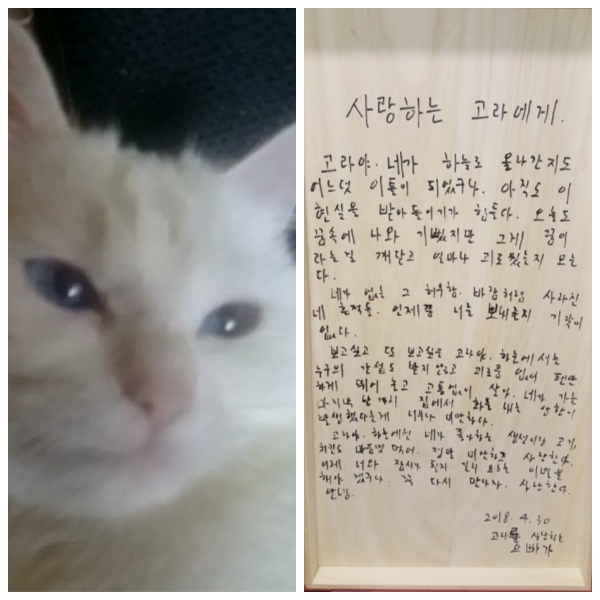 사랑하는 고라에게.
고라야. 네가 하늘로 올라간지도
어느덧 이틀이 되었구나. 아직도 이
현실을 받아들이기가 힘들다. 오늘도
꿈속에 나와 기뻤지만 그게 꿈이
라는걸 깨닫고 얼마나 괴로웠는지 모른
다.
네가 없는 그 허무함. 바람처럼 사라진
네 흔적들. 언제쯤 너를 보내줄지 기약이
없다.
보고싶고 또 보고싶은 고라야. 하늘에서는
누구의 간섭도 받지 않고 괴로움 없이 편안
하게 뛰어 놀고 고통없이 살아. 네가 가는
마지막 날 까지 집에서 화를 내는 상황이
발생했다는게 너무나 미안하다.
고라야. 하늘에선 네가 좋아하는 생선이랑 고기,
치킨도 마음껏 먹어. 정말 미안하고 사랑한다.
이제 너와 잠시가 될지 길지 모르는 이별을
해야 겠구나. 꼭 다시 만나자. 사랑한다.
안녕.
2018. 4. 30
고라를 사랑하는
오빠가